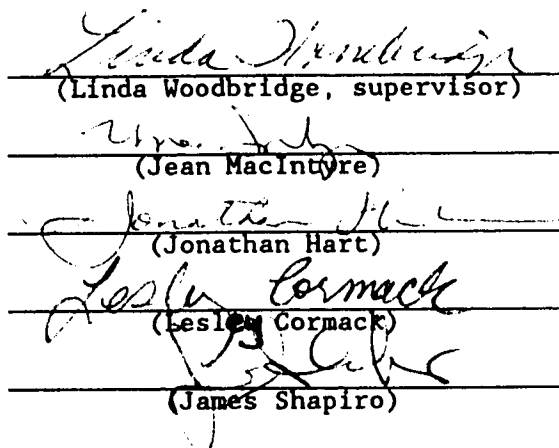 Linda Woodbridge
(Linda Woodbridge, supervisor)
(Jean MacIntyre)
Jonathan Hart
(Jonathan Hart)
Lesley Cormack
(Lesley Cormack)
(James Shapiro)